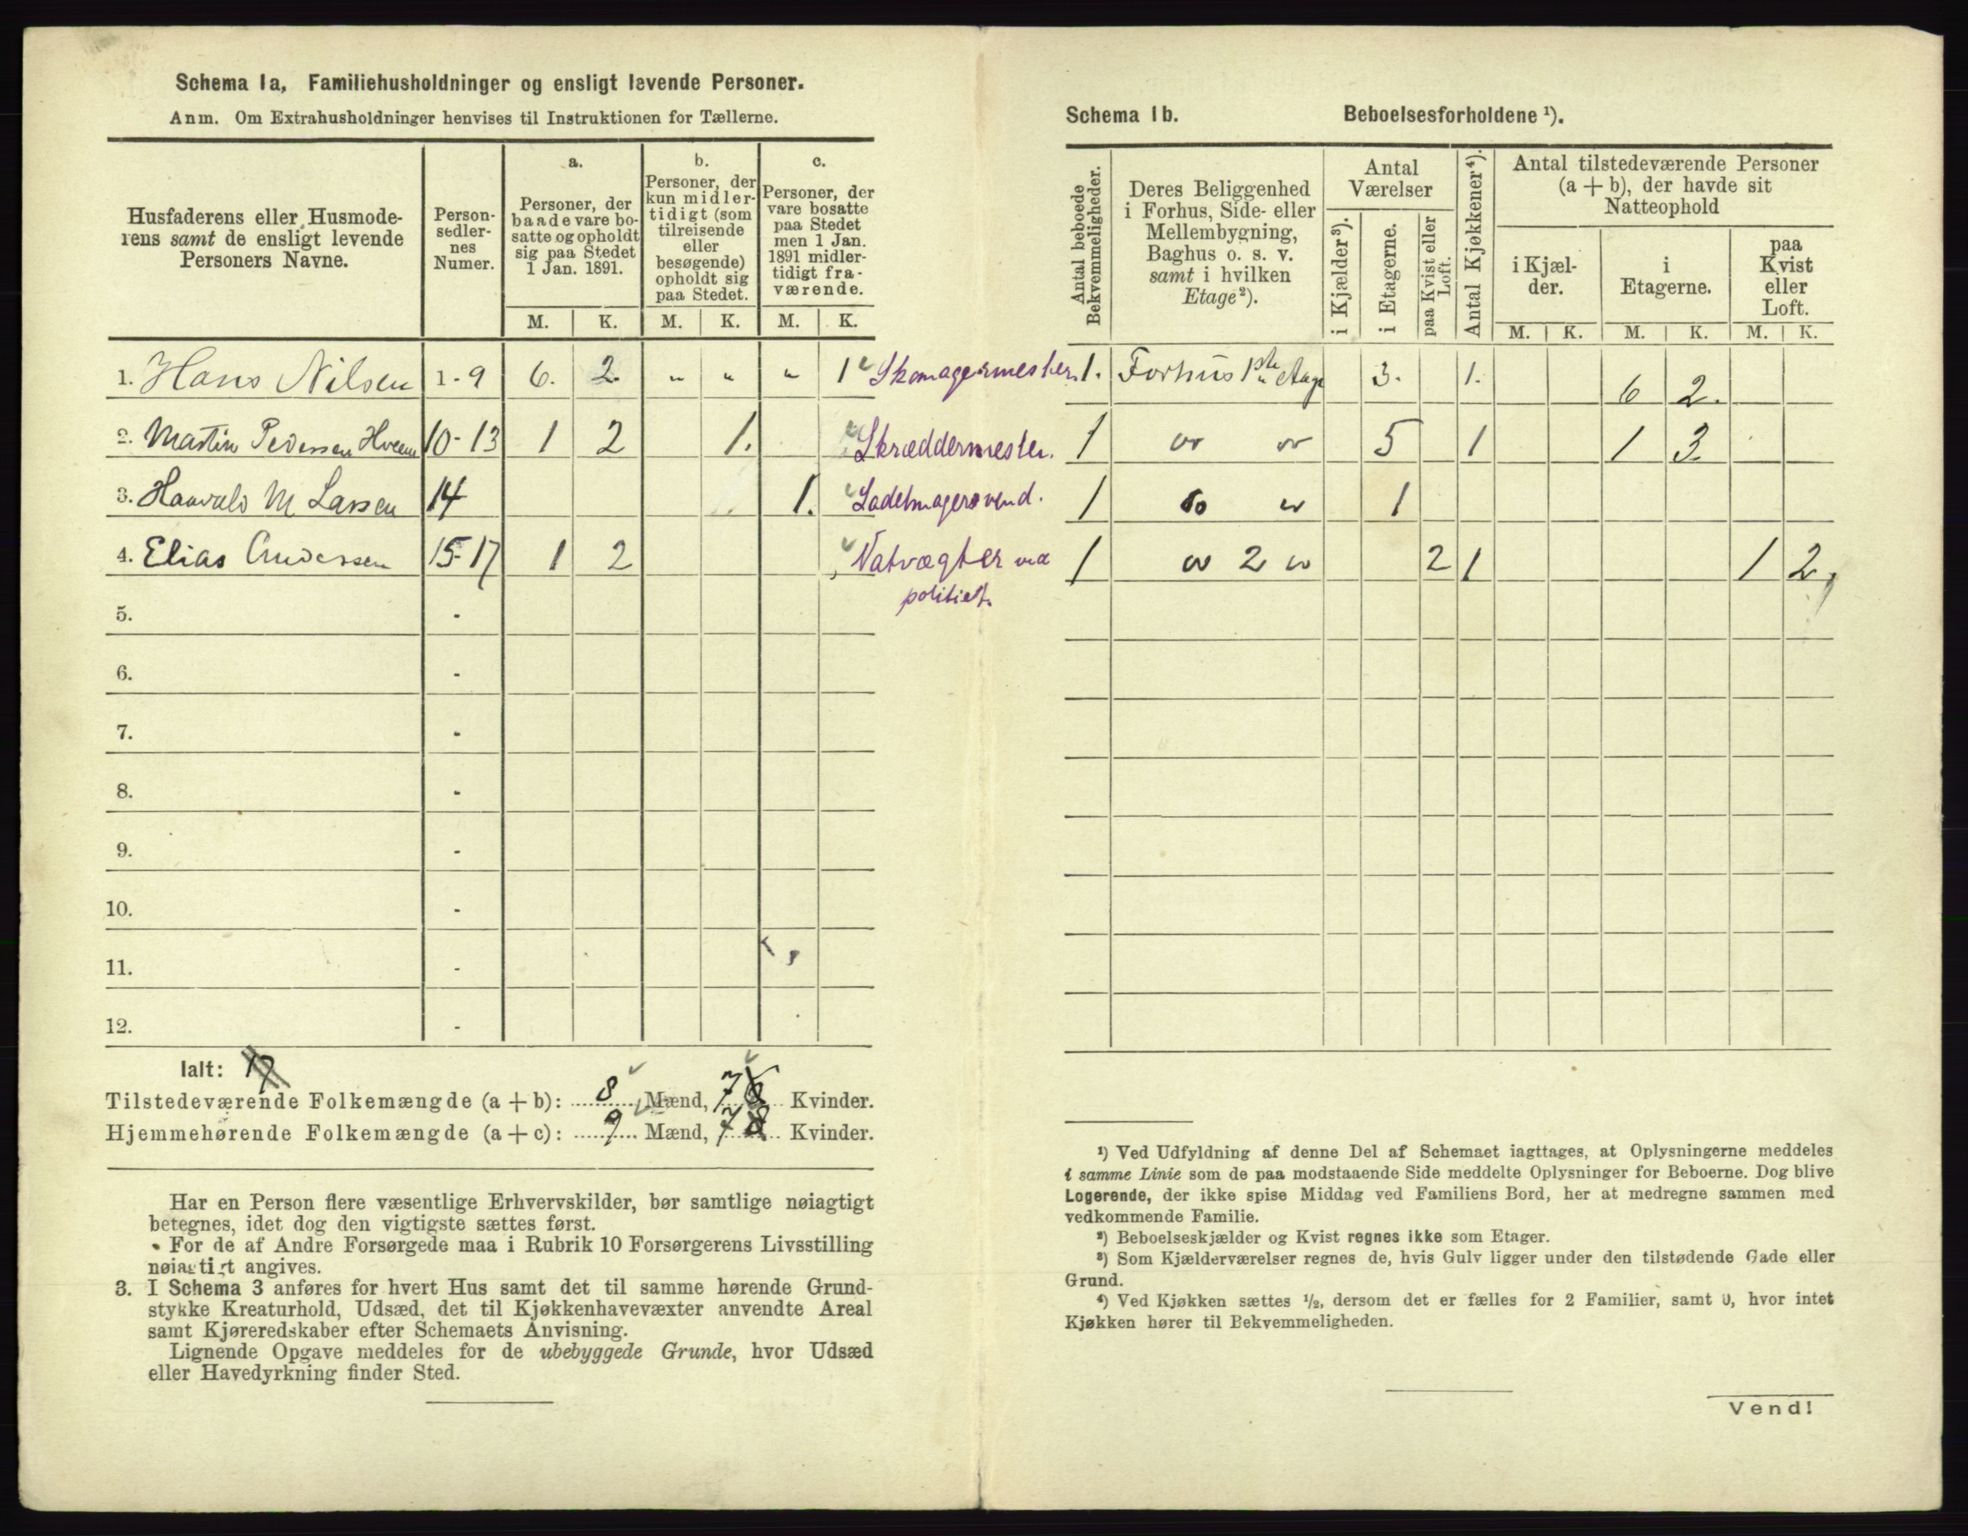 Schema 1a, Familiehusholdninger og ensligt levende Personer.
Anm. Om Extrahusholdninger henvises til Instruktionen for Tællerne.
Husfaderens eller Husmode-
rens samt de ensligt levende
Personers Navne.
Person-
sedler-
nes
Numer.
a.
Personer, der
baade vare bo-
satte og opholdt
sig paa Stedet
1 Jan. 1891.
b.
Personer, der
kun midler-
tidigt (som
tilreisende
eller
besøgende)
opholdt sig
paa Stedet.
c.
Personer, der
vare bosatte
paa Stedet
men 1 Jan.
1891 midler-
tidigt fra-
værende.
M. K. M. K. M. K.
1. Hans Nilsen 1-9 6. 2. " " " 1 Skomagermester.
2. Martin Pedersen Hveem 10-13 1 2 1. Skræddermester.
3. Haavald M Larsen 14 1. Sadelmagersvend.
4. Elias Andersen 15-17 1 2 Natvægter ved
politiet.
5. -
6. -
7. -
8. -
9. -
10. -
11. -
12. -
Ialt: 17
Tilstedeværende Folkemængde (a + b): 8 Mænd, 7 8 Kvinder.
Hjemmehørende Folkemængde (a + c): 9 Mænd, 7 8 Kvinder.
Har en Person flere væsentlige Erhvervskilder, bør samtlige nøiagtigt
betegnes, idet dog den vigtigste sættes først.
For de af Andre Forsørgede maa i Rubrik 10 Forsørgerens Livsstilling
nøiagtigt angives.
3. I Schema 3 anføres for hvert Hus samt det til samme hørende Grund-
stykke Kreaturhold, Udsæd, det til Kjøkkenhavevæxter anvendte Areal
samt Kjøreredskaber efter Schemaets Anvisning.
Lignende Opgave meddeles for de ubebyggede Grunde, hvor Udsæd
eller Havedyrkning finder Sted.
Schema 1b. Beboelsesforholdene ¹).
Antal beboede
Bekvemmeligheder.
Deres Beliggenhed
i Forhus, Side- eller
Mellembygning,
Baghus o. s. v.
samt i hvilken
Etage²).
Antal
Værelser
i Kjælder³).
i Etagerne.
paa Kvist eller
Loft.
Antal Kjøkkener⁴).
Antal tilstedeværende Personer
(a + b), der havde sit
Natteophold
i Kjæl-
der.
i
Etagerne.
paa
Kvist
eller
Loft.
M. K. M. K. M. K.
1. Forhus 1ste Etage 3. 1. 6 2.
1 " " 5 1 1 3
1 do " 1
1 " 2 " 2 1 1 2
¹) Ved Udfyldning af denne Del af Schemaet iagttages, at Oplysningerne meddeles
i samme Linie som de paa modstaaende Side meddelte Oplysninger for Beboerne. Dog blive
Logerende, der ikke spise Middag ved Familiens Bord, her at medregne sammen med
vedkommende Familie.
²) Beboelseskjælder og Kvist regnes ikke som Etager.
³) Som Kjælderværelser regnes de, hvis Gulv ligger under den tilstødende Gade eller
Grund.
⁴) Ved Kjøkken sættes ½, dersom det er fælles for 2 Familier, samt 0, hvor intet
Kjøkken hører til Bekvemmeligheden.
Vend!